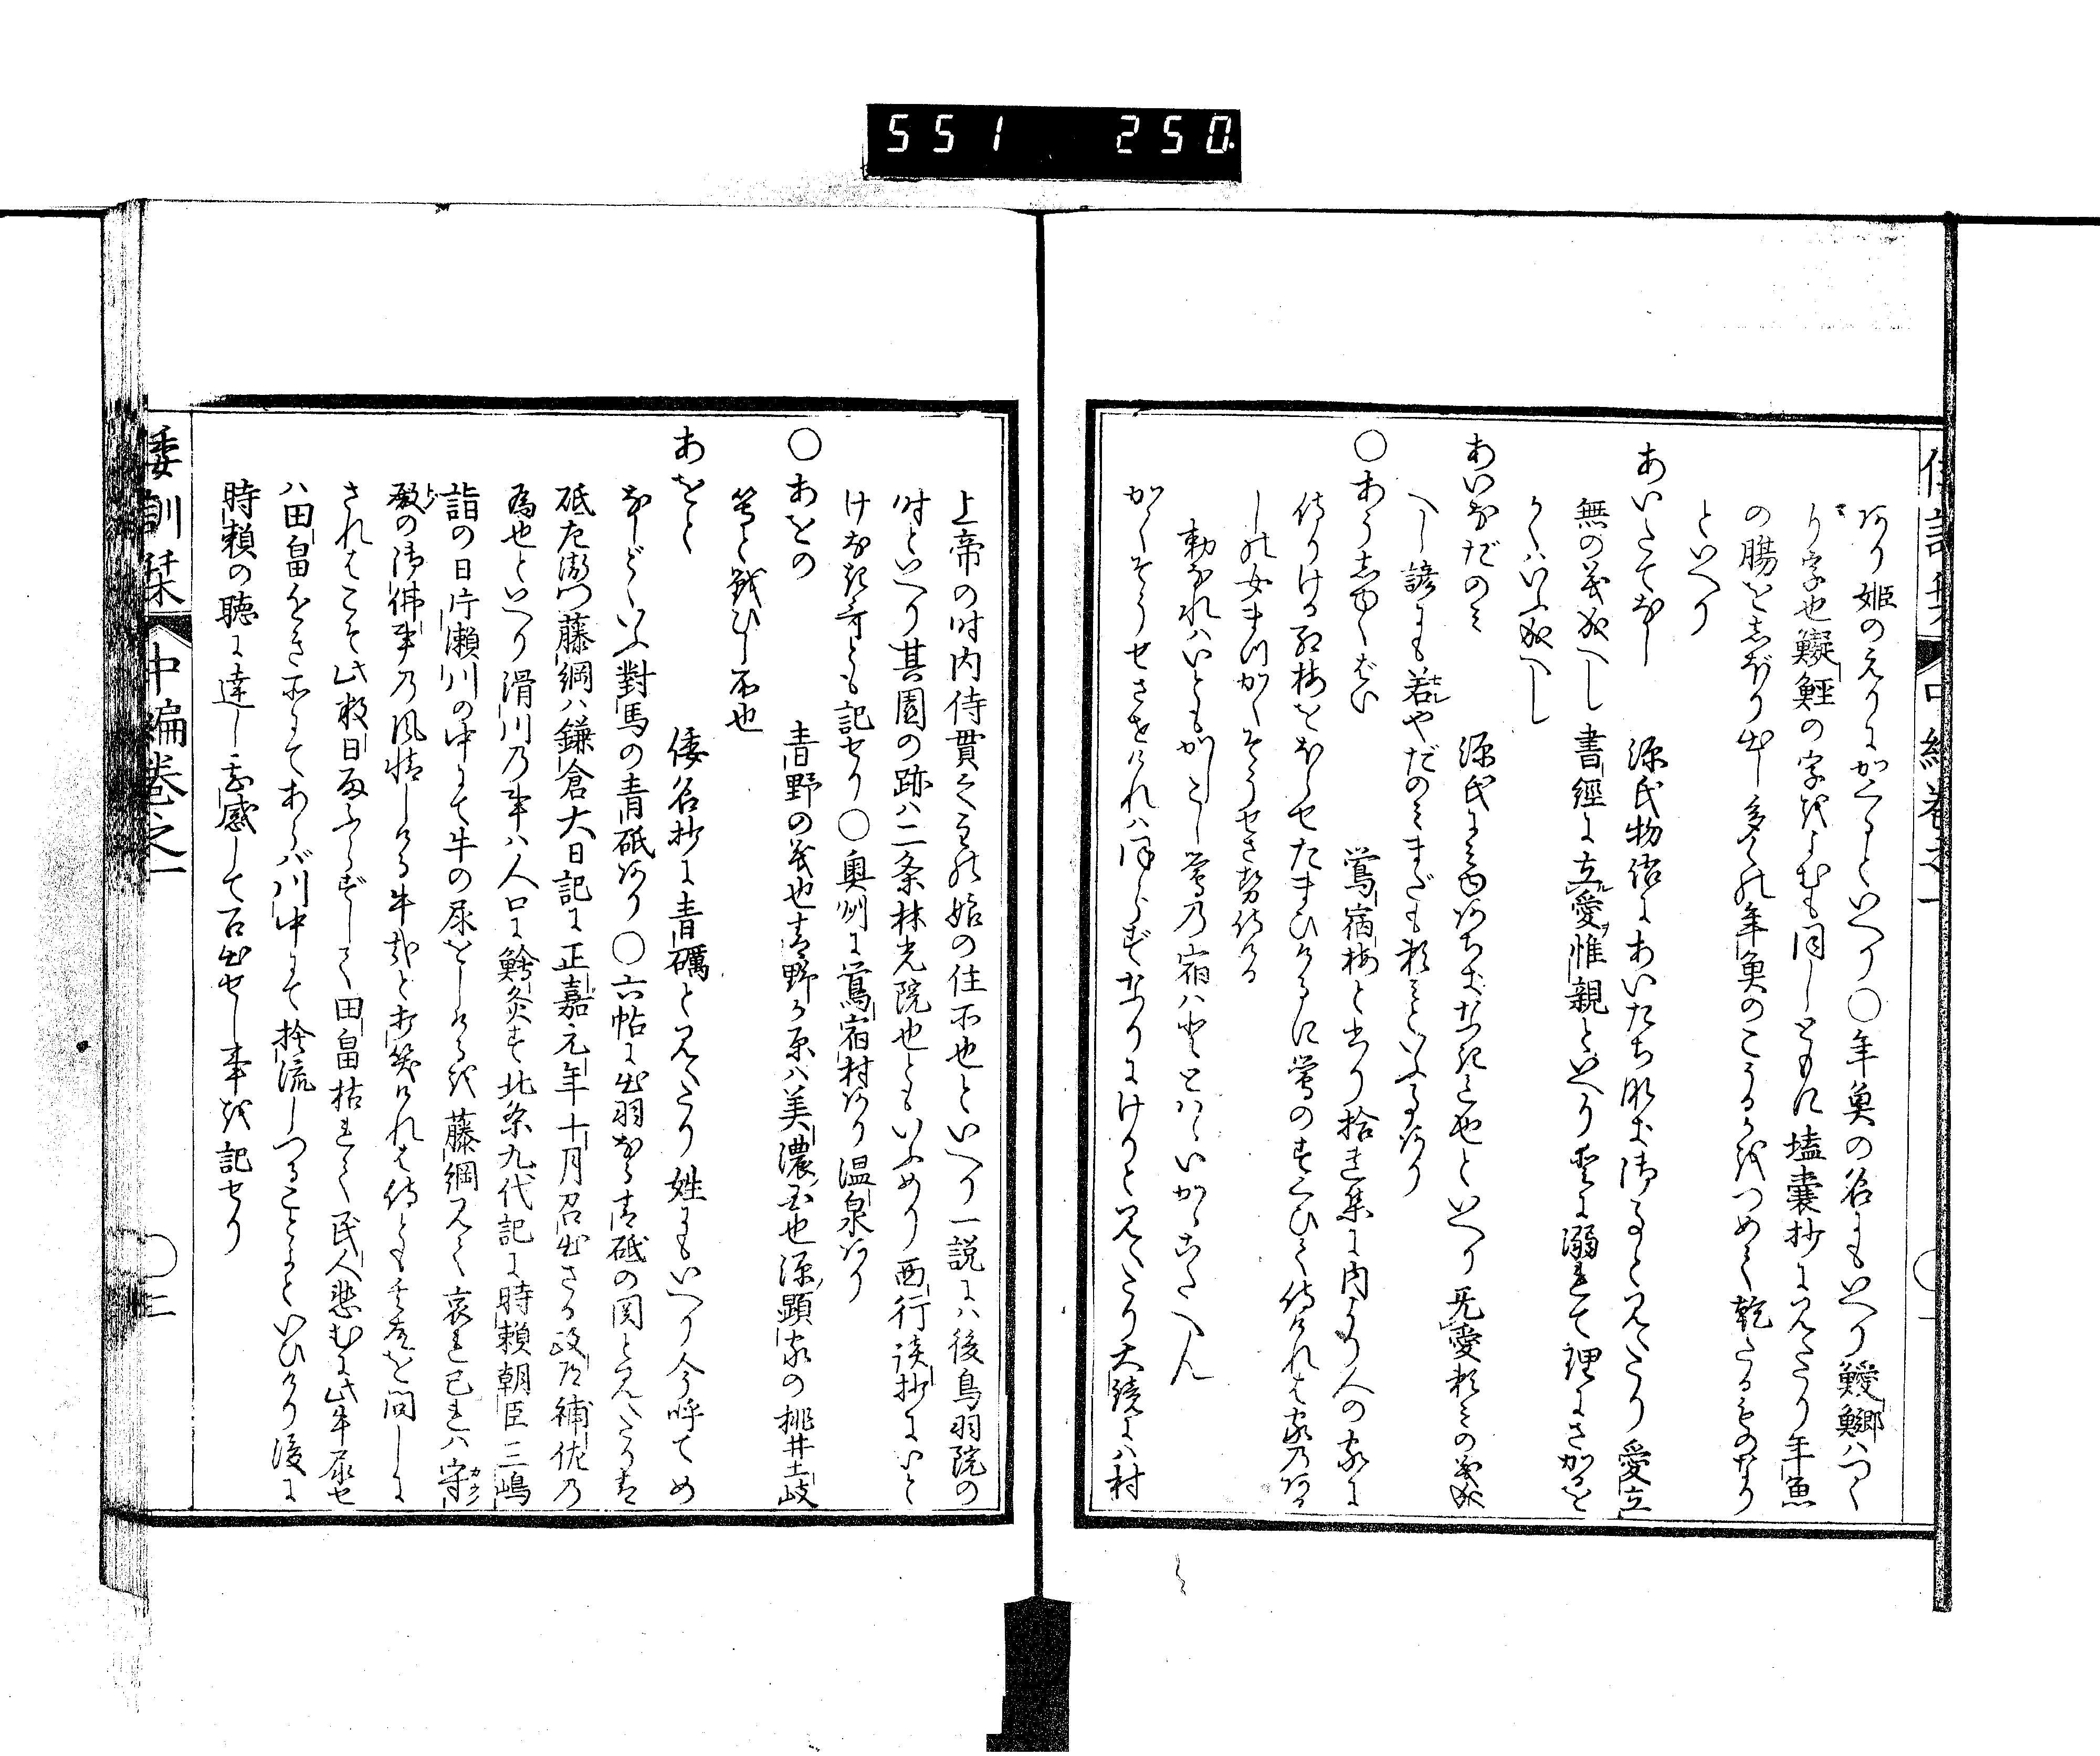 551 250
あり姫のえりにかくるといへり〇年魚の名にもいへり鰀䲙ハつく
り字也鱫鮏の字をよむも同しともに壒囊抄に見えたり年魚
の腸をしぼり出し多くの年魚のこうるをつめて乾たるものなり
といへり
あいたてなし 源氏物語にあいたち那御ると見えたり愛立
無の義成へし書經に立愛惟親といへり愛に溺れて理にさかるを
かくハいふ成へし
あいなだのミ 源氏に見ゆあちきなきミ也といへり无愛頼ミの義成
へし諺にも若やだのミまだも頼ミといふ事あり
〇あうしゆくばい 鶯宿梅と書り拾遺集に内より人の家に
侍りける紅梅をほらせたまひけるに鶯のすくひて侍けれは家乃ある
しの女まつかくそうせさせ侍ける
勅なれハいともかしこし鶯乃宿ハととはゝいかゝこたへん
かくそうせさせけれハほらずなりにけりと見えたり大鏡にハ村
上帝の时内侍貫之主の娘の住所也といへり一説にハ後鳥羽院の
时といへり其園の跡ハ二条林光院也ともいふめり西行談抄にいと
けなき哥とも記せり〇奥州に鶯宿村あり温泉あり
〇あをの 青野の義也青野か原ハ美濃国也源顕家の桃井土岐
等と戦ひし所也
あをと 倭名抄に青礪と見えたり姓にもいへり今呼てめ
なしどゝいふ對馬の青砥あり〇六帖に出羽なる青砥の関と見えたり青
砥左衛门藤綱ハ鎌倉大日記に正嘉元年十月召出さる政乃補佐乃
為也といへり滑川乃事ハ人口に鱠炙す北条九代記に時頼朝臣三嶋
詣の日片瀬川の中にて牛の尿をしけるを藤綱見て哀れ己れハ守
殿の御佛事乃風情しける牛哉と打笑けれは侍とも其意を問しに
されはこそ此数日雨ふらずして田畠枯れて民人悲むに此牛尿せ
ハ田畠をき所にてあらバ川中にて捨流しつることよといひけり後に
時頼の聴に達し其感して召出せし事を記せり
倭訓栞 中編卷之一 〇二